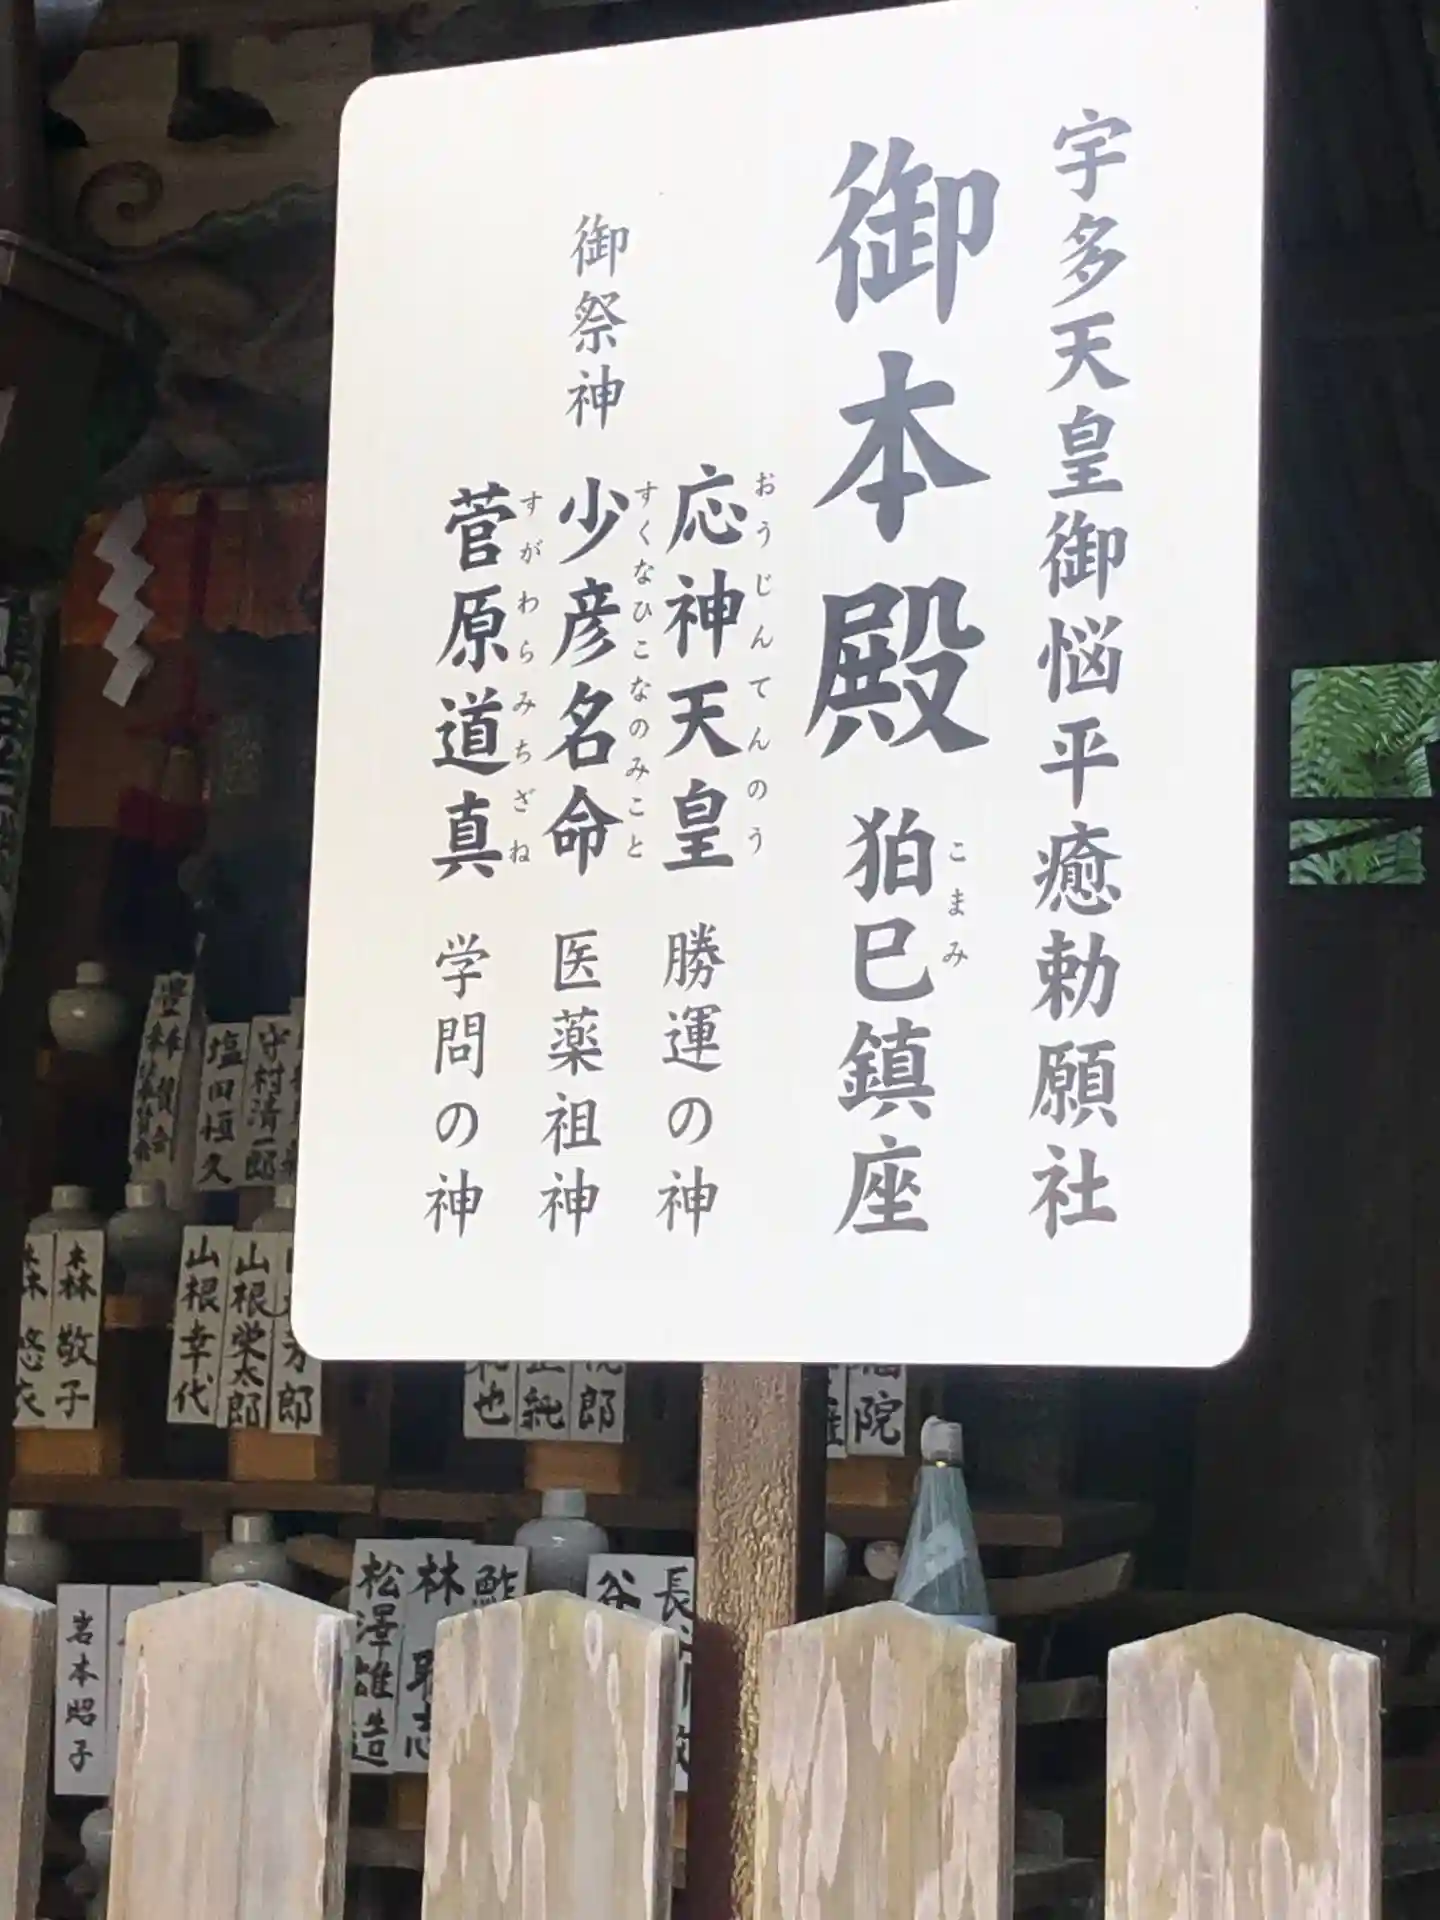 宇多天皇御悩平癒勅願社
御本殿 狛巳鎮座
こまみ
御祭神
応神天皇 勝運の神
おうじんてんのう
少彦名命 医薬祖神
すくなひこなのみこと
菅原道真 学問の神
すがわらみちざね
守村清一郎
塩田恒久
山根栄太郎
山根幸代
森 敬子
林
松澤雄造
岩本昭子